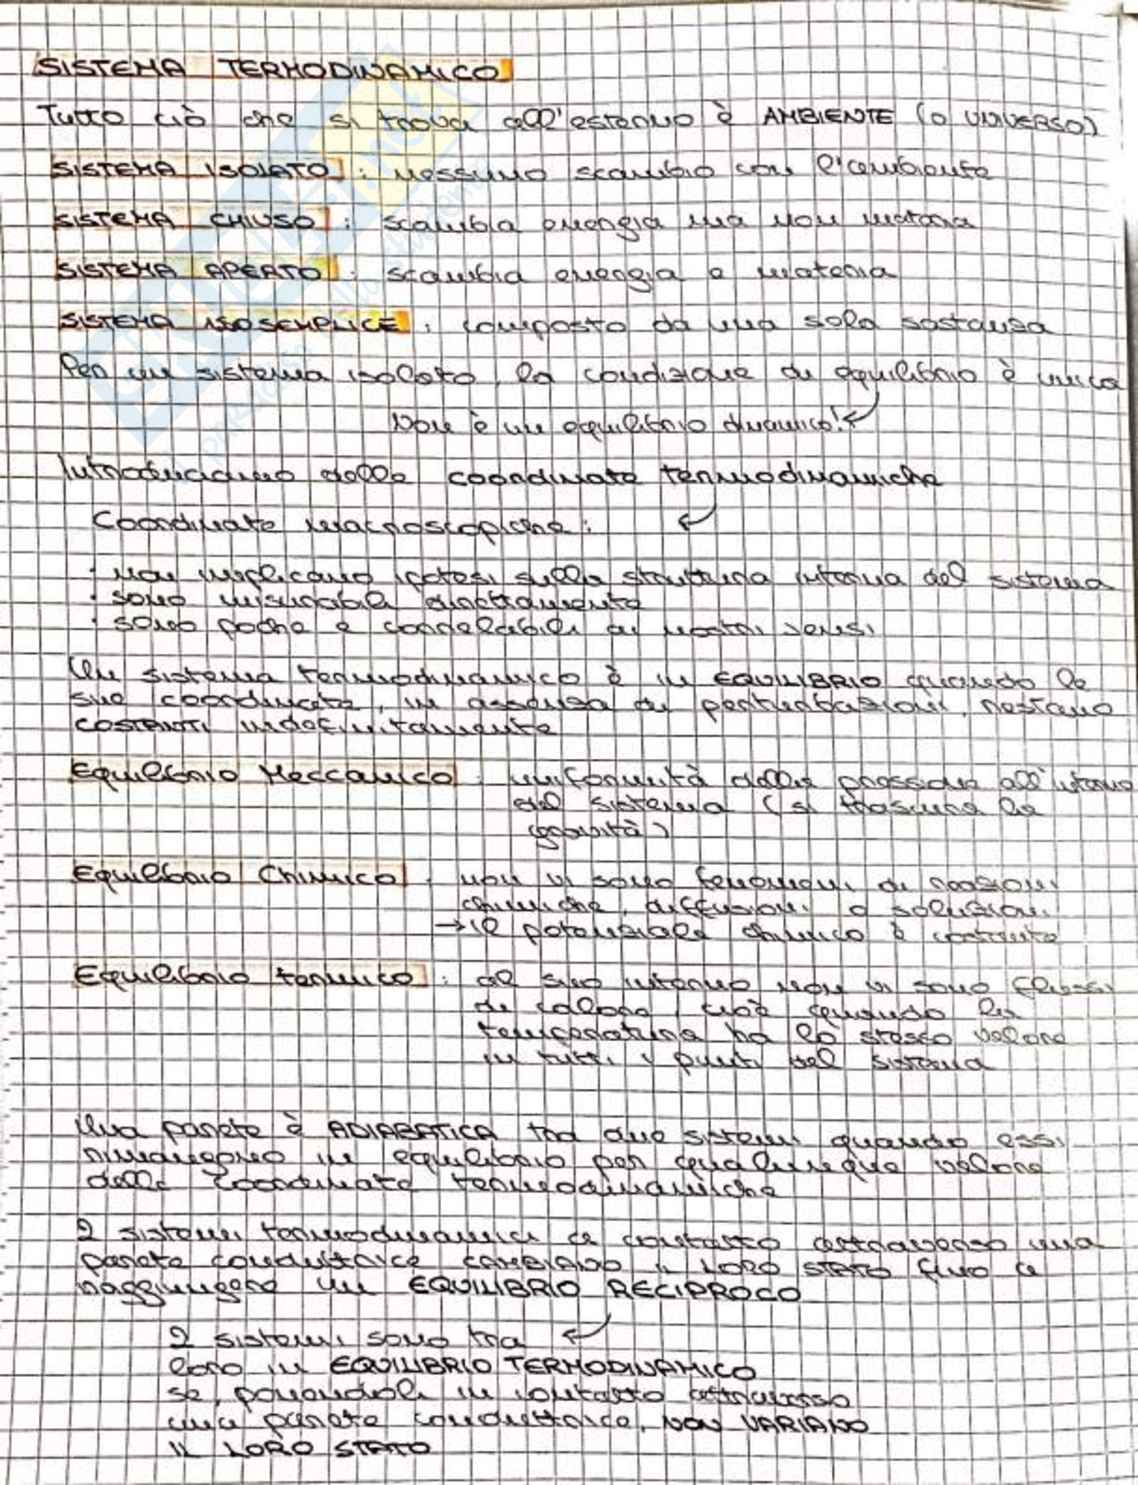 SISTEMA TERMODINAMICO
Tutto ciò che si trova all'esterno è AMBIENTE (O UNIVERSO)
SISTEMA ISOLATO : nessuno scambio con l'ambiente
SISTEMA CHIUSO : scambia energia ma non materia
SISTEMA APERTO : scambia energia e materia
SISTEMA ISOSEMPLICE : composto da una sola sostanza
Per un sistema isolato, la condizione di equilibrio è unica
Non è un equilibrio dinamico!
Introduciamo delle coordinate termodinamiche
Coordinate macroscopiche :
· non implicano ipotesi sulla struttura interna del sistema
· sono misurabili direttamente
· sono poche e correlabili ai nostri sensi
Un sistema termodinamico è in EQUILIBRIO quando le
sue coordinate, in assenza di perturbazioni, restano
COSTANTI indefinitamente
Equilibrio Meccanico : uniformità della pressione all'interno
del sistema (si trascura la
gravità)
Equilibrio Chimico : non vi sono fenomeni di reazioni
chimiche, diffusioni o soluzioni
→ il potenziale chimico è costante
Equilibrio termico : al suo interno non vi sono flussi
di calore, cioè quando la
temperatura ha lo stesso valore
in tutti i punti del sistema
Una parete è ADIABATICA tra due sistemi quando essi
rimangono in equilibrio per qualunque valore
delle coordinate termodinamiche
2 sistemi termodinamici a contatto attraverso una
parete conduttrice CAMBIANO IL LORO STATO fino a
raggiungere un EQUILIBRIO RECIPROCO
2 sistemi sono tra
loro in EQUILIBRIO TERMODINAMICO
se, ponendoli in contatto attraverso
una parete conduttrice, NON VARIANO
IL LORO STATO